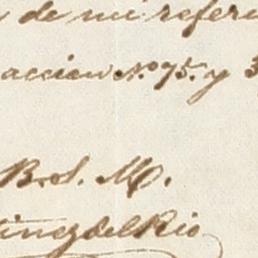 de mi refere
accion No. 75. y 3
B. S. M.
tinez del Rio